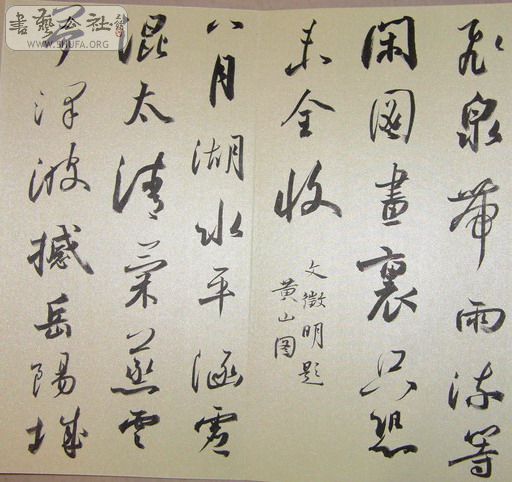 飛泉帶雨流等
閑圖畫裏只恐
未全收
文徵明題
黃山图
八月湖水平涵虛
混太清氣蒸雲
夢澤波撼岳陽城
書藝公社
WWW.SHUFA.ORG